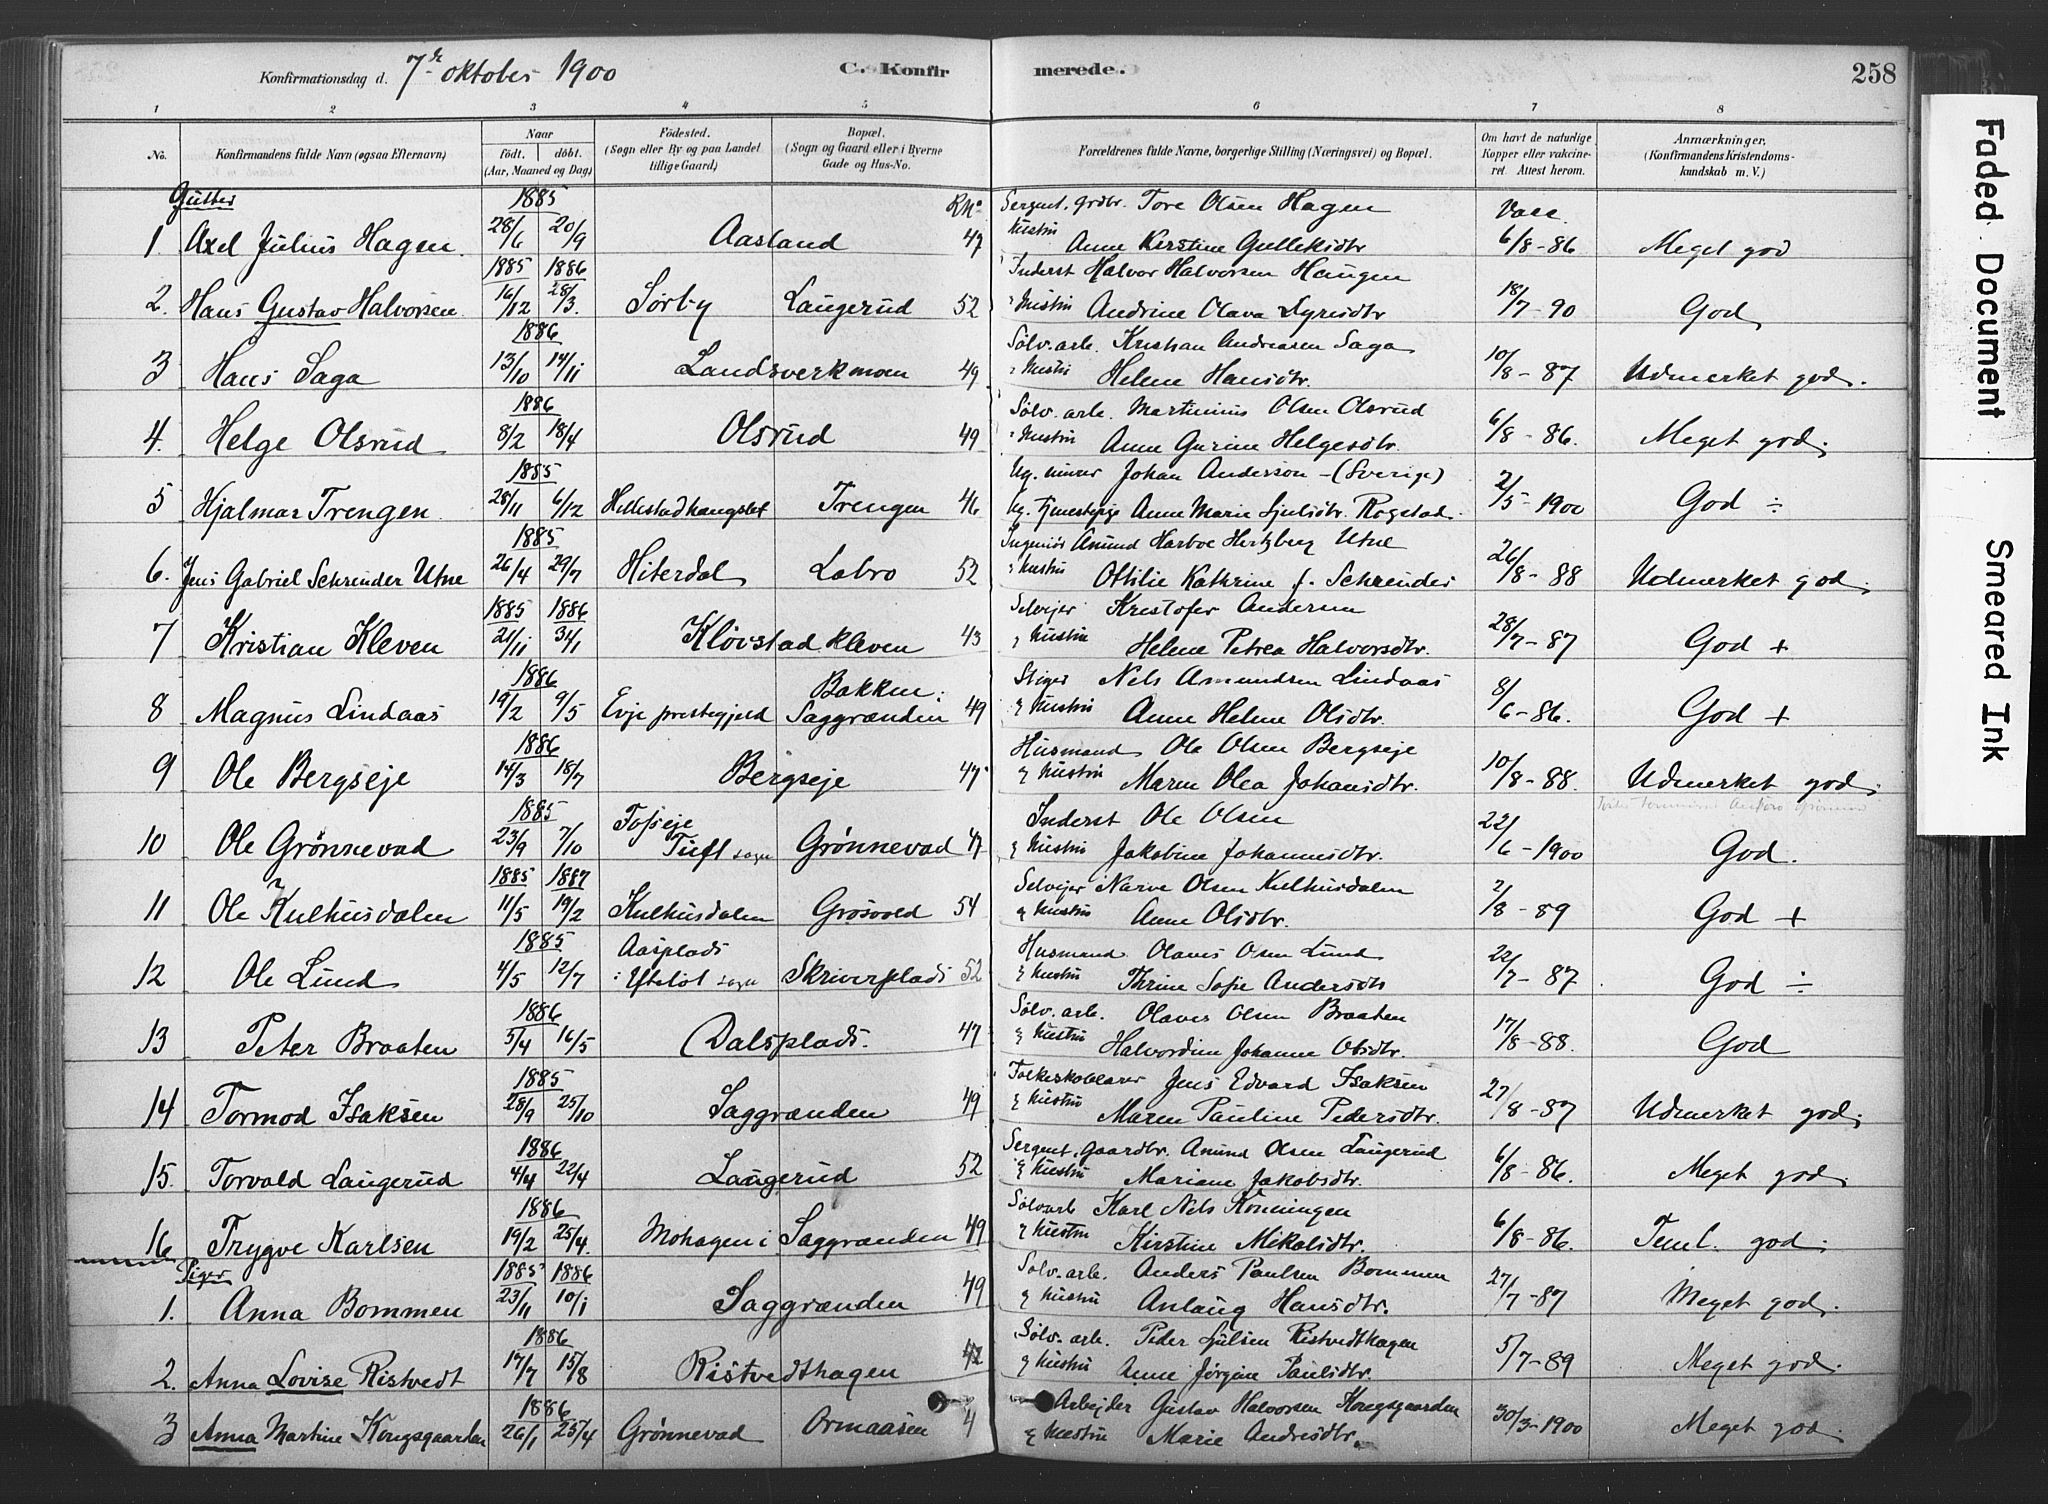 Konfirmationsdag d. 7de oktober 1900 C. Konfirmerede. 258
1 2 3 4 5 6 7 8
No. Konfirmandens fulde Navn (ogsaa Efternavn) Naar født. døbt. (Aar, Maaned og Dag) Fødested. (Sogn eller By og paa Landet tillige Gaard) Bopæl. (Sogn og Gaard eller i Byerne Gade og Hus-No. Forældrenes fulde Navne, borgerlige Stilling (Næringsvei) og Bopæl. Om havt de naturlige Kopper eller vakcineret. Attest herom. Anmærkninger. (Konfirmandens Kristendomskundskab m. V.)
Gutter 1885 Sergent, grdbr. Tore Olsen Hagen Vacc.
1. Axel Julius Hagen. 28/6 20/9 Aasland 47 Hustru Anne Kirstine Gulleksdtr 6/8-86 Meget god
1885 1886 Inderst Halvor Halvorsen Haugen
2. Hans Gustav Halvorsen 16/12 28/3 Sørby Laugerud 52 Hustru Andrine Olava 18/7-90 God
1886 Sølv.arb. Kristian Andreasen Saga
3 Hans Saga 13/10 14/11 Landsverkmoen 49 Hustru Helene Hansdtr. 10/8-87 Udmerket god.
1886 Sølv.arb. Martinius Olsen Olsrud
4. Helge Olsrud 8/2 18/4 Olsrud 49 Hustru Anne Gurine Helgesdtr. 6/8-86. Meget god.
1885 Ug. murer Johan Anderson - (Sverige)
5 Hjalmar Trengen 28/11 6/12 Trengen 46 Ug. Tjenestepige Anne Marie Rogstad. 2/5-1900 God ÷
1885 Ingeniør Amund Harboe Hertzberg Utne
6. Jens Gabriel Schreuder Utne 26/4 29/7 Hiterdal Labro 52 Hustru Ottilie Kathrine f. Schreuder 26/8-88 Udmerket god.
1885 1886 Selveier Kristofer Andersen
7 Kristian Kleven 21/11 31/1 Kløvstadkleven 43 & Hustru Helene Petrea Halvorsdtr. 28/7-87 God +
1886 Bakken i Stiger Nils Amundsen Lindaas
8 Magnus Lindaas 19/2 9/5 Evje prestegjeld Saggrænden 49 & Hustru Anne Helene Olsdtr. 8/6-86. God +
1886 Husmand Ole Olsen Bergseje
9 Ole Bergseje 14/3 18/7 Bergseje 47 & Hustru Maren Olea Johansdtr. 10/8-88 Udmerket god.
1885 Inderst Ole Olsen
10 Ole Grønnevad 23/9 7/10 Tuft sogn Grønnevad 47 & Hustru Jakobine Johannesdtr. 22/6-1900 God.
1885 1887 Selvejer Narve Olsen Kulhusdalen
11 Ole Kulhusdalen 11/5 19/2 Kulhusdalen Grosvold 54 & Hustru Anne Olsdtr. 2/8-89 God +
1885 Aasplads Husmand Olaves Olsen Lund
12 Ole Lund 4/5 12/7 i Efteløt sogn Skriverplads 52 & Hustru Thrine Sofie Andersdtr 22/7-87 God ÷
1886 Sølv.arb. Olaves Olsen Braaten
13 Peter Braaten 5/4 16/5 Dalsplads. 47 & Hustru Halvordine Johanne Olsdtr. 17/8-88. God
1885 Folkeskolelærer Jens Edvard Isaksen
14 Tormod Isaksen 28/9 25/10 Saggrænden 49 & Hustru Maren Pauline Pedersdtr. 27/8-87 Udmerket god.
1886 Sergent, Gaardbr. Amund Olsen Laugerud
15. Torvald Laugerud 4/4 22/4 Laugerud 52 & Hustru Mariane Jakobsdtr. 6/8-86. Meget god.
1886 Sølvarb Karl Nils Konningen
16 Trygve Karlsen 19/2 25/4. Mohagen i Saggrænden 49 & Hustru Kirstine Mikalsdtr. 6/8-86. Teml. god.
Piger 1885 1886 Sølv.arb. Anders Paulsen Bommen
1. Anna Bommen 23/11 10/1 Saggrænden 49 & Hustru Anlaug Hansdtr. 27/7-87 Meget god.
1886 Sølv.arb. Peder Ristvedthagen
2. Anna Lovise Ristvedt 17/7 15/8 Ristvedthagen 42 & Hustru Anne Jørgine Paulsdtr. 5/7-89 Meget god.
1886 Arbejder Gustav Halvorsen Kongsgaarden
3 Anna Martine Kongsgaarden 26/1 25/4 Grønnevad Ormaasen 4 & Hustru Marie Andresdtr. 30/3-1900 Meget god.
Faded Document
Smeared Ink